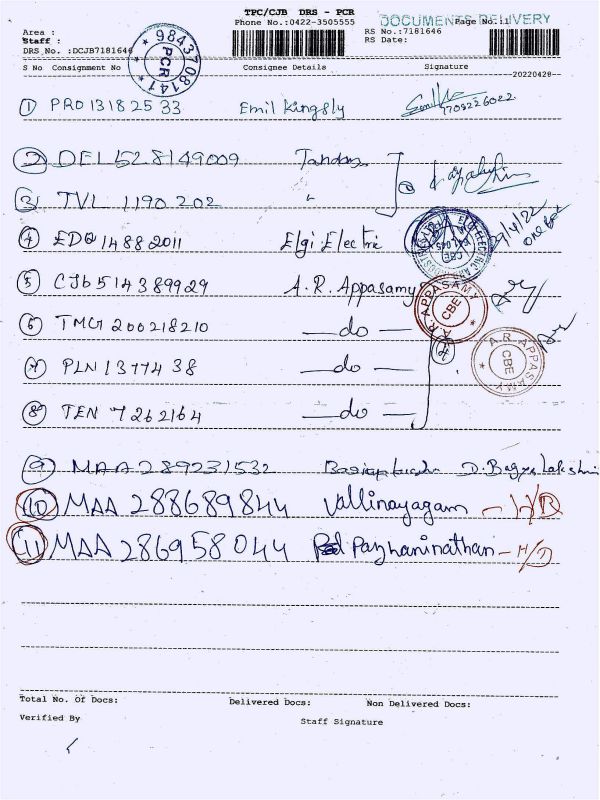 TPC/CJB DRS - PCR
Phone No:0422-3505555
DOCUMENTS DELIVERY
Page No:11
Area :
Staff :
DRS No. :DCJB7181646
RS No.:7181646
RS Date:
9843708141
PCR
S No Consignment No Consignee Details Signature
20220420
1 PRO 1318 25 33 Emil Kingsly
7708226022
2 DEL 528149009
3 TVL 1190 202 "
4 EDQ 1488 2011 Elgi Electric
29/4/22
one Box
5 CJb 514389929 A.R. Appasamy
A.R. APPASAMY
CBE
6 TMG 200218210 — do —
A.R. APPASAMY
CBE
7 PLN 1377438 — do —
8 TEN 7262164 — do —
9 MAA 289231532
10 MAA 288689844 Vallinayagam - H/D
11 MAA 286958044 Pazhaninathan - H/D
Total No. Of Docs: Delivered Docs: Non Delivered Docs:
Verified By Staff Signature